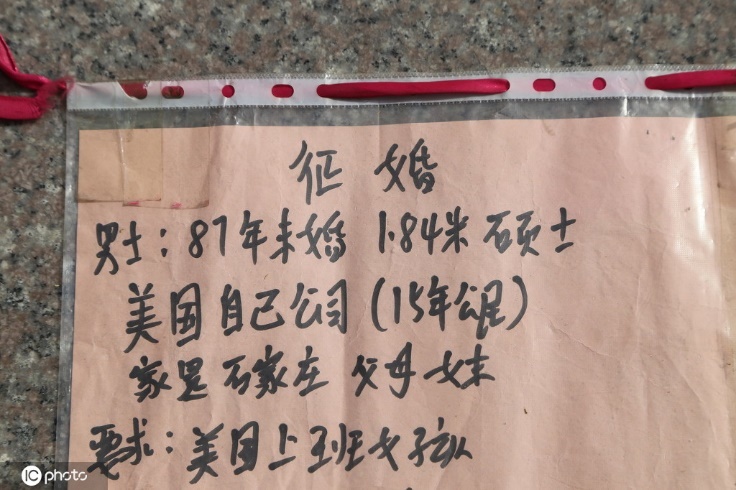 征婚
男士：87年未婚 1.84米 硕士
美国自己公司（15年公民）
家是石家庄 父母 妹
要求：美国上班女孩
iC photo